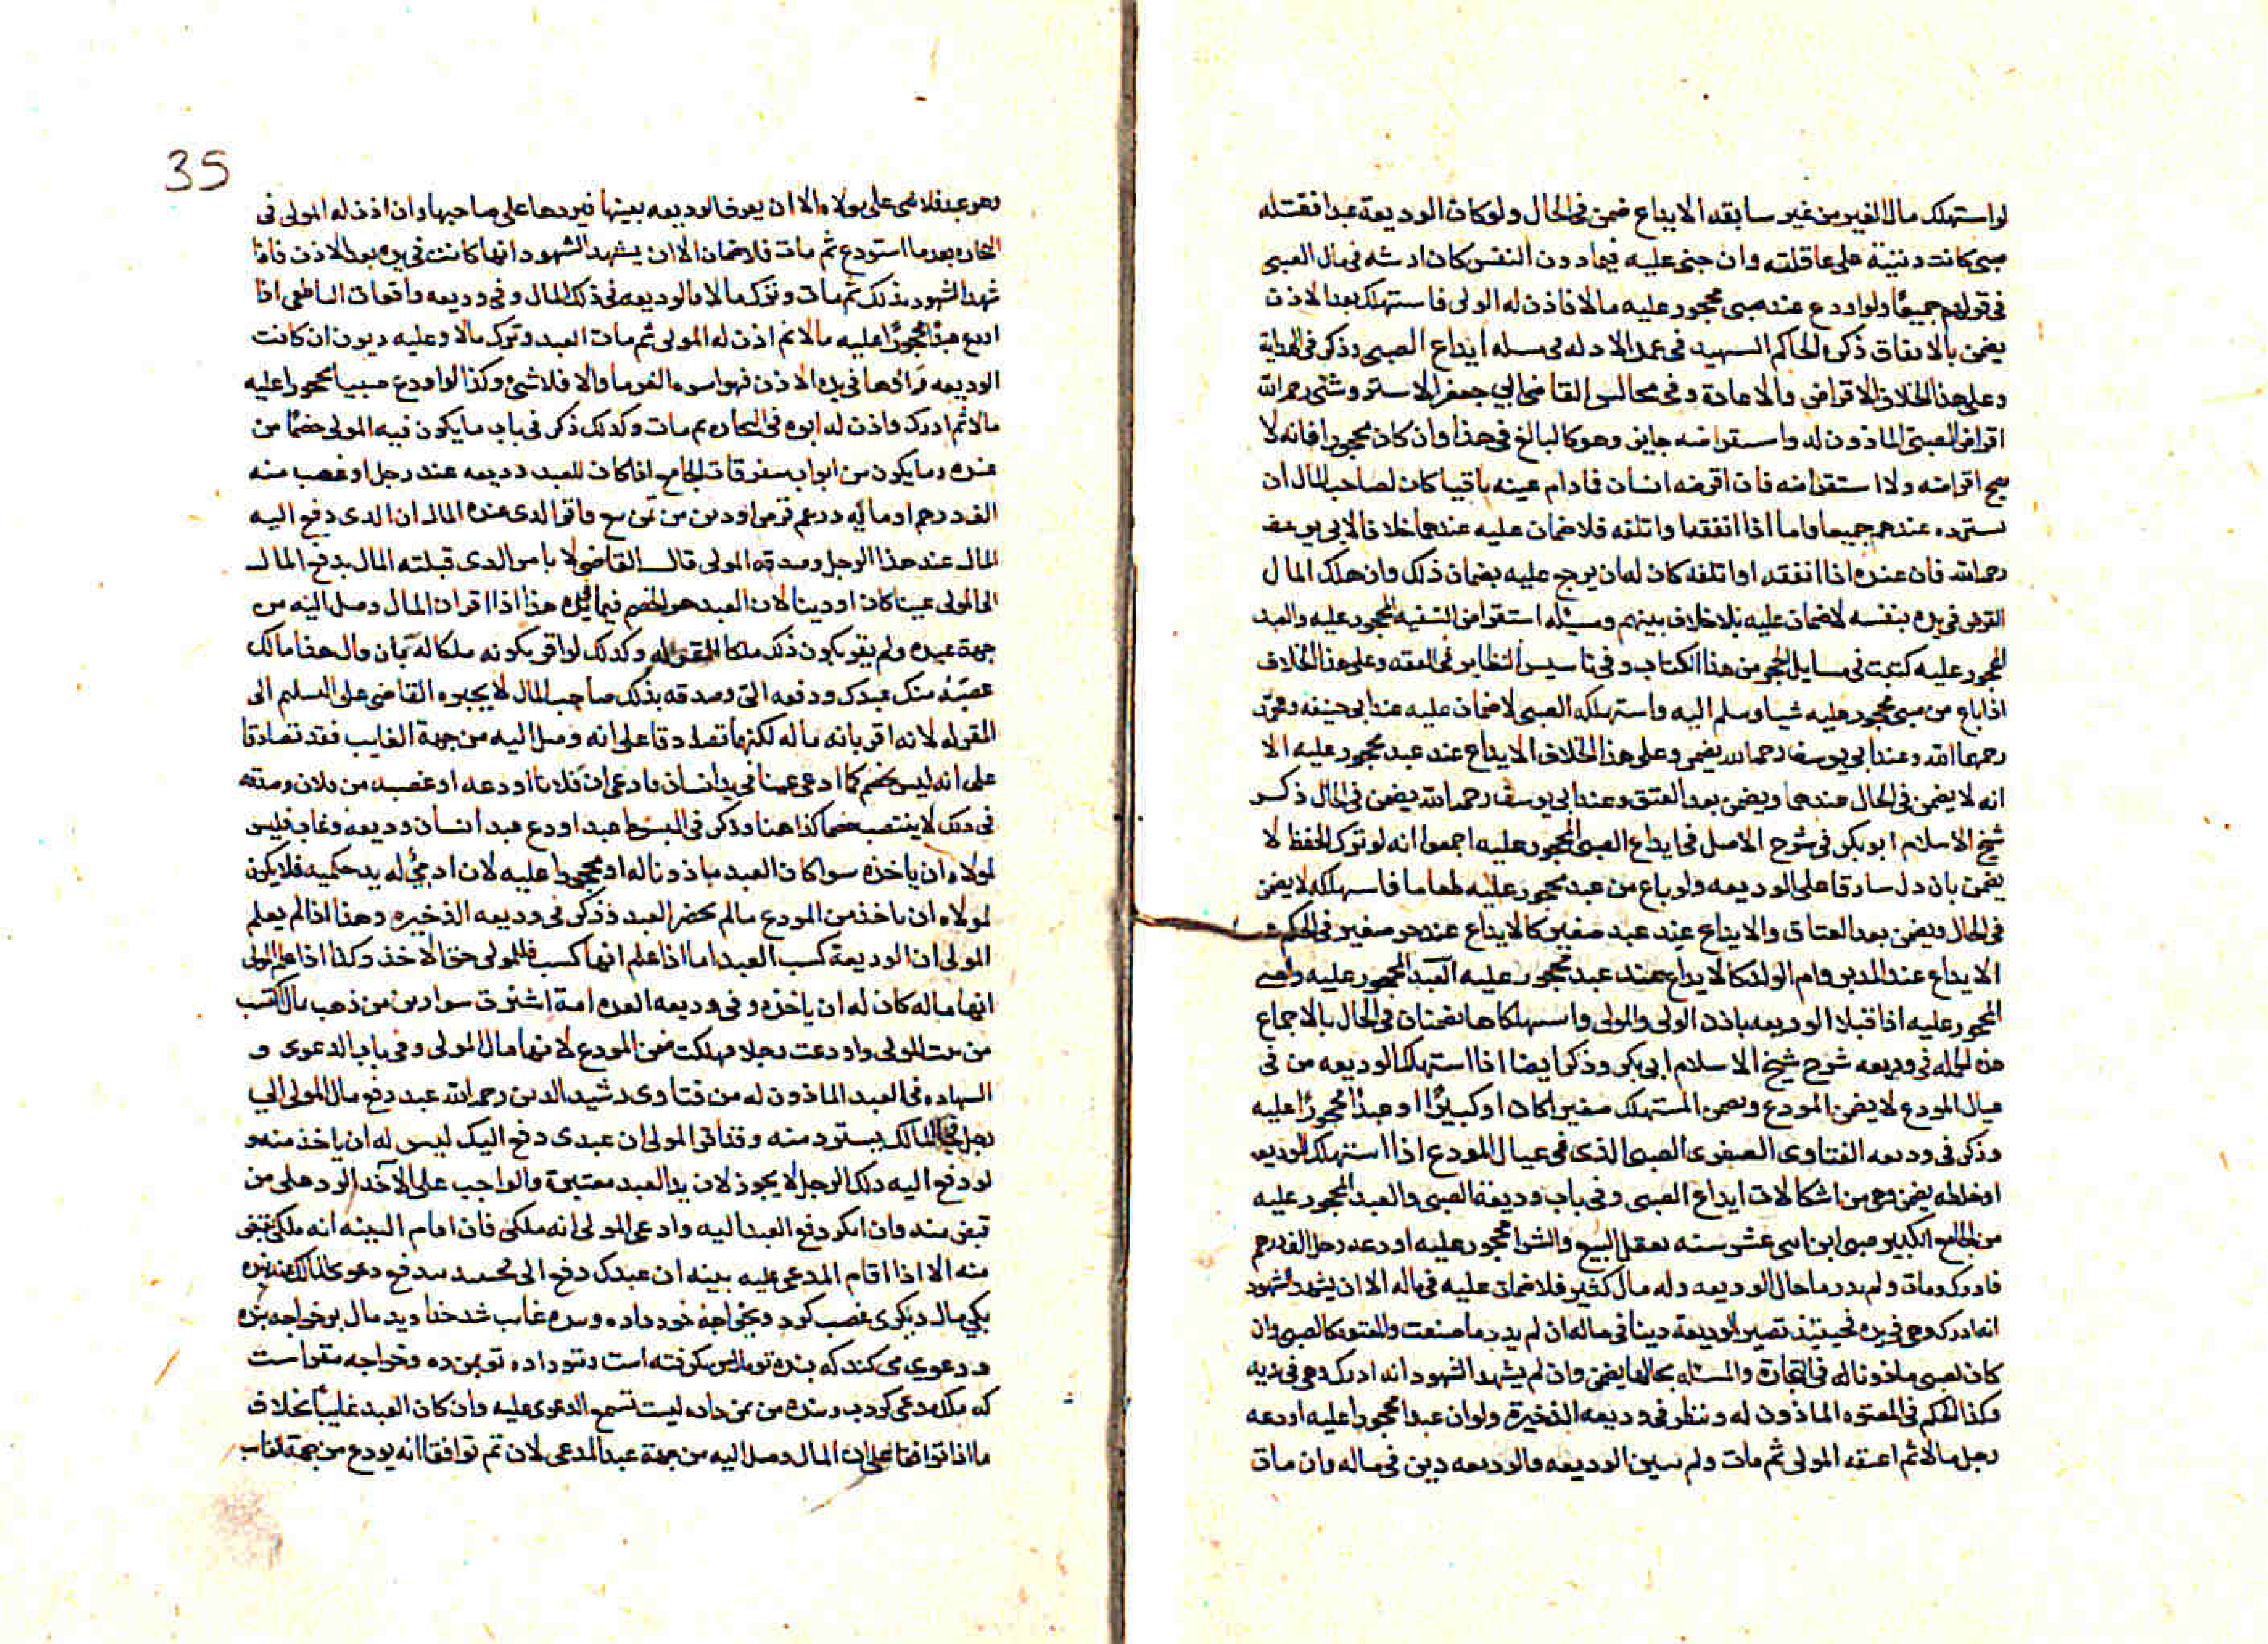 لو استهلك مال الغير من غير سابقه الايداع ضمن في الحال ولو كانت الوديعة عبدا فقتله
صبي كانت دنية على عاقلته وان جنى عليه فيما دون النفس كان ارشه في مال الصبي
في قولهم جميعًا ولو اودع عند صبي محجور عليه مالا فاذن له الولي فاستهلك بعد الاذن
يضمن بالاتفاق ذكره الحاكم السهيد في عمد الادله في مسله ايداع الصبي وذكر في الهداية
وعلى هذا الخلاف الاقراض والاعادة وفي مجالس القاضي ابي جعفر الاستروشني رحمه الله
اقراض الصبي الماذون له واستقراضه جايز وهو كالبالغ في هذا وان كان محجورا فانه لا
يصح اقراضه ولا استقراضه فان اقرضه انسان فادام عينه باقيا كان لصاحب المال ان
يسترده عندهم جميعا فاما اذا انفقه او اتلفه فلا ضمان عليه عندهما خلافا لابي يوسف
رحمه الله فان عنده اذا انفقه او اتلفه كان له ان يرجع عليه بضمان ذلك وان هلك المال
القرض في يده بنفسه لا ضمان عليه بلا خلاف بينهم ومسئله استقراض السفيه المحجور عليه والعبد
المحجور عليه كتبت في مسايل الحجر من هذا الكتاب وفي تاسيس النظاير في الفقه وعلى هذا الخلاف
اذا باع من صبي محجور عليه شيا وسلم اليه واستهلكه الصبي لا ضمان عليه عند ابي حنيفه ومحمد
رحمهما الله وعند ابي يوسف رحمه الله يضمن وعلى هذا الخلاف الايداع عند عبد محجور عليه الا
انه لا يضمن في الحال عندهما ويضمن بعد العتق وعند ابي يوسف رحمه الله يضمن في الحال ذكر
شيخ الاسلام ابو بكر في شرح الاصل في ايداع الصبي المحجور عليه اجمعوا انه لو ترك الحفظ لا
يضمن بان دل سارقا على الوديعه ولو باع من عبد محجور عليه طعاما فاستهلكه لا يضمن
في الحال ويضمن بعد العتاق والايداع عند عبد صغير كالايداع عند حر صغير في الحكم
الايداع عند المدبر وام الولد كالايداع عند عبد محجور عليه العبد المحجور عليه والصبي
المحجور عليه اذا قبلا الوديعه باذن الولي والمولى واستهلكاها يضمنان في الحال بالاجماع
هذه الجمله في وديعه شرح شيخ الاسلام ابي بكر وذكر ايضا اذا استهلك الوديعه من في
عيال المودع لا يضمن المودع ويضمن المستهلك صغيرا كان او كبيرًا او عبدًا محجورًا عليه
وذكر في وديعه الفتاوى الصغرى الصبي الذي في عيال المودع اذا استهلك الوديعه
او خلطه يضمن وهي من اشكالات ايداع الصبي وفي باب وديعة الصبي والعبد المحجور عليه
من الجامع الكبير صبي ابن اثني عشر سنه يعقل البيع والشرا محجور عليه اودعه رجل الف درهم
فادرك ومات ولم يدر ما حال الوديعه وله مال كثير فلا ضمان عليه في ماله الا ان يشهد الشهود
انه ادرك وهي في يده فحينئذ تصير الوديعة دينا في ماله ان لم يدر ما صنعت والمعتوه كالصبي وان
كان الصبي ماذونا له في التجارة والمسئله بحالها يضمن وان لم يشهد الشهود انه ادرك وهي في يديه
وكذا الحكم في المعتوه الماذون له وينظر في وديعه الذخيرة ولو ان عبدا محجورا عليه اودعه
رجل مالا ثم اعتقه المولى ثم مات ولم يبين الوديعه فالوديعه دين في ماله وان مات
وهو عبد فلا شي على مولاه الا ان يعرف الوديعه بعينها فيردها على صاحبها وان اذن له المولى في
التجاره بعد ما استودع ثم مات فلا ضمان الا ان يشهد الشهود انها كانت في يده بعد الاذن فاذا
شهد الشهود بذلك ثم مات وترك مالا فالوديعه في ذلك المال وفي وديعه واقعات الناطفي اذا
اودع عبدًا محجورًا عليه مالا ثم اذن له المولى ثم مات العبد وترك مالا وعليه ديون ان كانت
الوديعه راوها في يده الاذن فهو اسوه الغرما والا فلا شئ وكذا لو اودع صبيا محجورا عليه
مالا ثم ادرك واذن له ابوه في التجاره ثم مات وكذلك ذكر في باب ما يكون فيه المولى خصمًا من
عنده وما يكون من ابواب متفرقات الجامع اذا كان للعبد وديعه عند رجل او غصب منه
الف درهم او مايه درهم قرض او دين من ثمن بيع واقر الذي عنده المال ان الذي دفع اليه
المال عند هذا الرجل وصدقه المولى قال القاضي لا يامر الذي قبله المال بدفع المال
الى المولى عينا كان او دينا لان العبد هو الخصم فيما يليه هذا اذا اقر ان المال وصل اليه من
جهة عبده ولم يقر بكون ذلك ملكا للمقر له وكذلك لو اقر بكونه ملكا له بان قال هذا مالك
غصبه منك عبدك ودفعه الي وصدقه بذلك صاحب المال لا يجبره القاضي على التسليم الى
المقر له لانه اقر بانه ماله لكنهما تصادقا على انه وصل اليه من جهة الغايب فقد تصادقا
على انه ليس بخصم كما ادعى عينا في يد انسان فادعى ان فلانا اودعه او غصبه من فلان وصدقه
في ذلك لا ينتصب خصما كذا هنا وذكر في المبسوط عبد اودع عبد انسان وديعه وغاب فليس
لمولاه ان ياخذه سوا كان العبد ماذونا له او محجورا عليه لان ادمي له يد حكميه فلا يكون
لمولاه ان ياخذ من المودع ما لم يحضر العبد وذكر في وديعه الذخيره وهذا اذا لم يعلم
المولى ان الوديعة كسب العبد اما اذا علم انها كسب فللمولى حق الاخذ وكذا اذا علم المولى
انها ماله كان له ان ياخذه وفي وديعه العده امة اشترت سوارين من ذهب بمال اكتسب
من بيت المولى واودعت رجلا فهلكت ضمن المودع لانها مال المولى وفي باب الدعوى و
الشهاده في العبد الماذون له من فتاوى رشيد الدين رحمه الله عبد دفع مال المولى الى
رجل المالك يسترد منه وقال المولى ان عبدي دفع اليك ليس له ان ياخذ منه و
لو دفع اليه ذلك الرجل لا يجوز لان يد العبد معتبرة والواجب على الآخذ الرد على من
قبض منه وان انكر دفع العبد اليه وادعى المولى انه ملكي فان اقام البينه انه ملكي يقضى
منه الا اذا اقام المدعى عليه بينه ان عبدك دفع الي فحينئذ يندفع دعوى المالك بنده
يكي مال ديكري غصب كرد وبخواجه خود داده وبنده غايب شد خداويد مال بر خواجه بنده
دعوى مي كند كه بنده تو مال من كرفته است وبتو داده تو بمن ده وخواجه مقر است
كه ملك مدعي كرد وبنده من بمن داده ليست تسمع الدعوى عليه وان كان العبد غايبًا بخلاف
ما اذا تواضعا على ان المال وصل اليه من جهة عبد المدعي لان ثم توافقا انه يودع من جهة الغايب
35